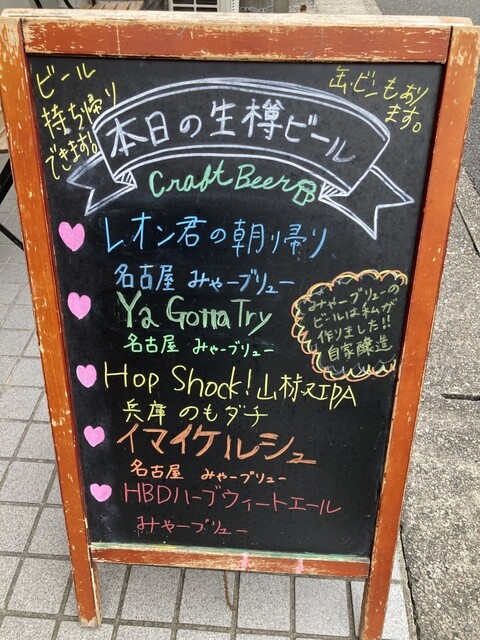 ビール
持ち帰り
できます。
缶ビンもあり
ます。
本日の生樽ビール
Craft Beer
レオン君の朝帰り
名古屋 みゃーブリュー
Ya Gotta Try
名古屋 みゃーブリュー
みゃーブリューの
ビールは私が
作りました!!
自家醸造
Hop Shock! 山椒IPA
兵庫 のもダチ
イマイケルシュ
名古屋 みゃーブリュー
HBDハーブウィートエール
みゃーブリュー